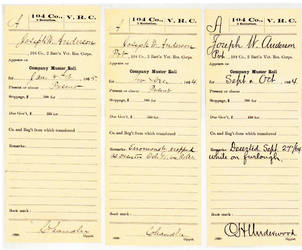 A 104 Co., V. R. C.
Joseph W. Anderson
Pvt., 104 Co., 2 Batt'n Vet. Res. Corps.
Appears on
Company Muster Roll
for Jan & Feb, 186 5.
Present or absent Present
Stoppage, $ 100 for
Due Gov't, $ 100 for
Co. and Reg't from which transferred
Remarks:
Book mark:
Chandler
Copyist.
A 104 Co., V. R. C.
Joseph W. Anderson
Pvt., 104 Co., 2 Batt'n Vet. Res. Corps.
Appears on
Company Muster Roll
for Nov & Dec, 186 4.
Present or absent Present
Stoppage, $ 100 for
Due Gov't, $ 100 for
Co. and Reg't from which transferred
Remarks: Erroneously dropped
as deserter
Book mark:
Chandler
Copyist.
A 104 Co., V. R. C.
Joseph W. Anderson
Pvt., 104 Co., 2 Batt'n Vet. Res. Corps.
Appears on
Company Muster Roll
for Sept & Oct, 186 4.
Present or absent
Stoppage, $ 100 for
Due Gov't, $ 100 for
Co. and Reg't from which transferred
Remarks: Deserted Sept. 27/64
while on furlough.
Book mark:
O H Underwood
Copyist.